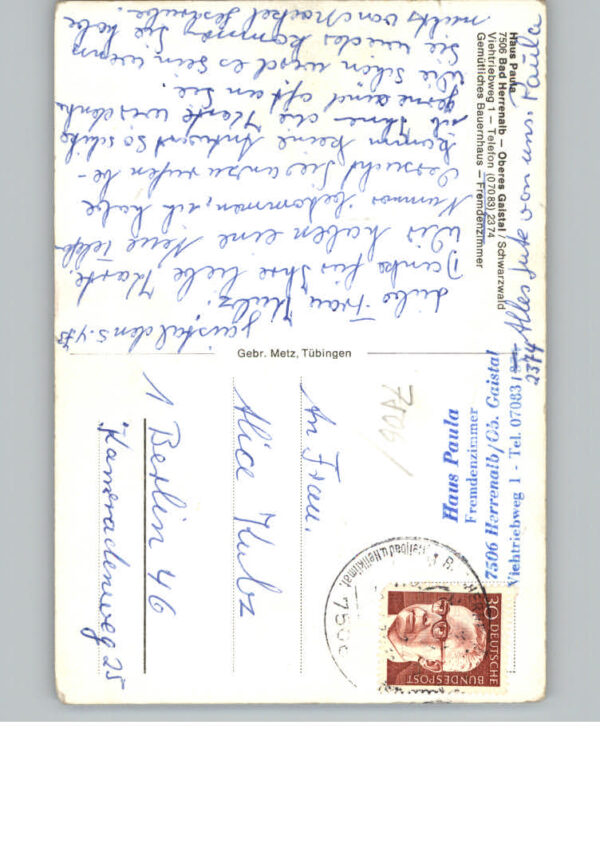 Haus Paula
7506 Bad Herrenalb — Oberes Gaistal / Schwarzwald
Viehtriebweg 1 — Telefon (07083) 2374
Gemütliches Bauernhaus — Fremdenzimmer
Gaistal den 5.4.73
Liebe Frau Kubz.
Danke für Ihre liebe Karte.
Wir haben eine Neue Telefon
Nummer bekommen, ich habe
versucht Sie anzurufen be-
kamm keine Antwort so schike
ich Ihnen die Karte wir denken
gerne und oft an Sie.
Wie schön wird es sein wenn
Sie wieder kommen. Sie habe
nichts von geschrieben.
Alles Gute von uns. Paula
Gebr. Metz, Tübingen
7506
Haus Paula
Fremdenzimmer
7506 Herrenalb/Ob. Gaistal
Viehtriebweg 1 - Tel. 07083/
2374
An Frau.
Alice Kubz
1 Berlin 46
Kameradenweg 25
7506
30 DEUTSCHE
BUNDESPOST